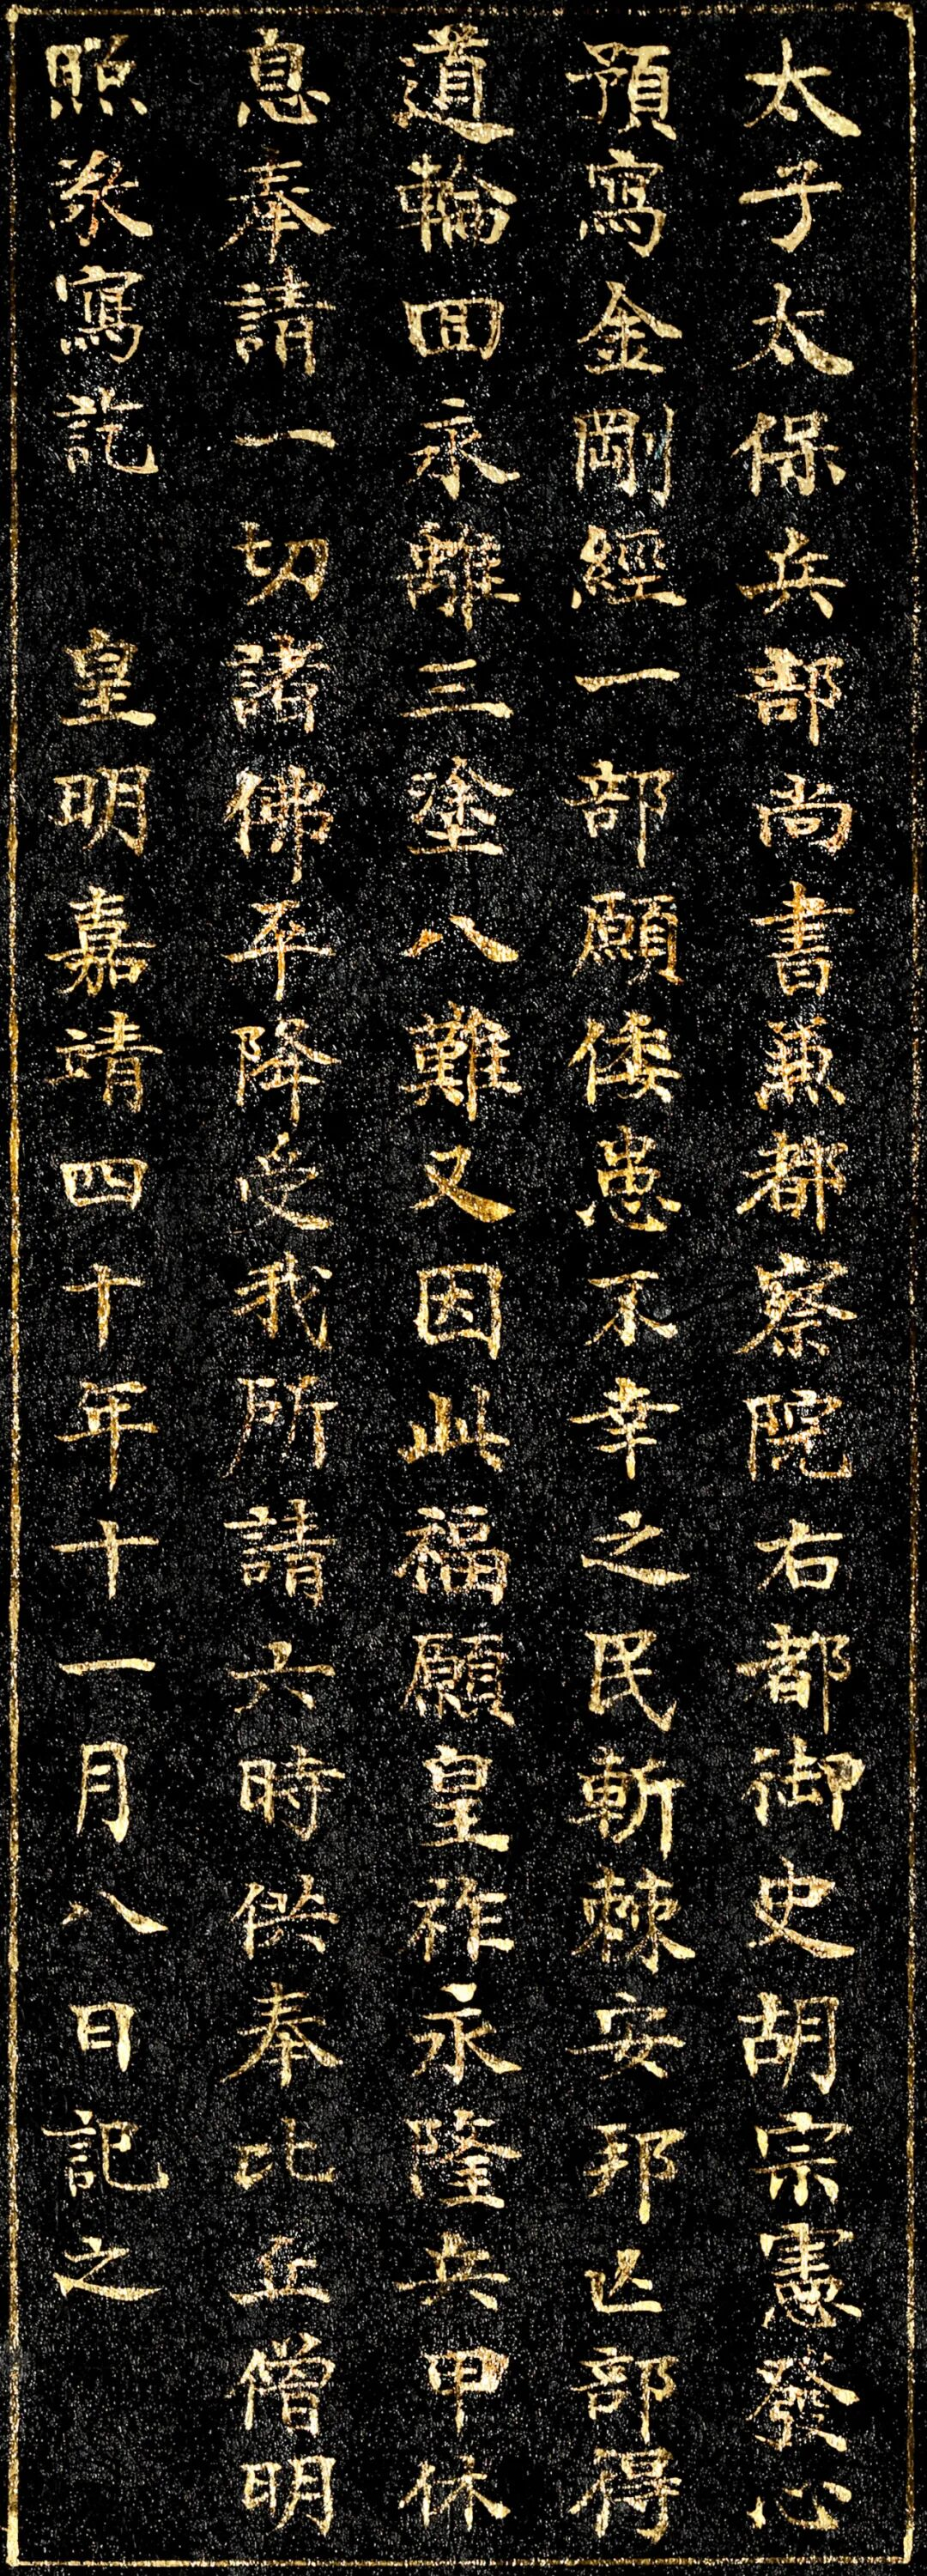 太子太保兵部尚書兼都察院右都御史胡宗憲發心
預寫金剛經一部願倭患不幸之民斬棘安邦亾部得
道輪囬永離三塗八難又因此福願皇祚永隆兵甲休
息奉請一切諸佛平降受我所請六時供奉比丘僧明
照敬寫訖　皇明嘉靖四十年十一月八日記之